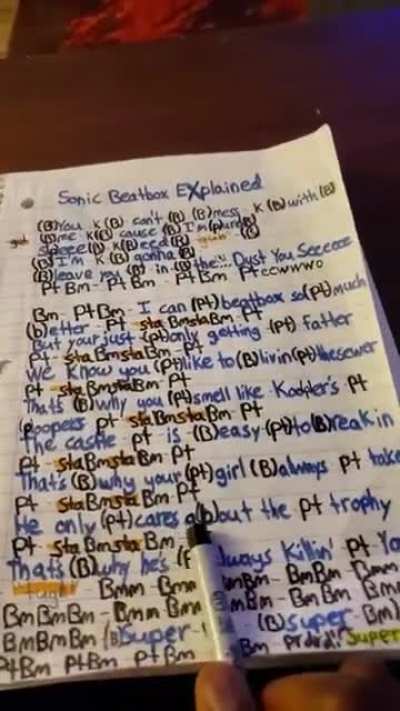 Sonic Beatbox EXplained
(B)You K (B) can't (B) (B)mess K (B) with (B)
(B)me K(B) cause (B) I'm (p)ure(B)
(B) K(B)eed (B) (B)
(B) I'm K (B) gonna (B)
(B)leave you (B) in (B) the... Dust You Seeeeee
Pt Bm - Pt Bm - Pt Bm Ptecwwwo
Bm - Pt Bm - I can (Pt) beatbox so (pt) much
(b)etter - Pt - sta Bmsta Bm - Pt
But your just (pt)only getting (pt) fatter
Pt - sta Bmsta Bm - Pt
We Know you (Pt)like to (B)livin(pt)thesewer
Pt - sta BmstaBm - Pt
Thats (B)why you (Pt)smell like Koopler's Pt
(p)oopers Pt - staBmstaBm- Pt
The castle - pt is - (B)easy-(pt)to(B)reakin
Pt - sta Bmsta Bm Pt
That's (B)why your (pt)girl (B)always pt take
Pt - sta Bmsta Bm - Pt
He only (pt)cares a(b)out the pt trophy
Pt - sta Bmsta Bm
Thats (B)why he's lways Killin' pt Yo
Bmm - Bmm mBm - BmBm - Bmm
BmBmBm - Bmm Bmm mBm - BmBm Bm
BmBmBm (B)Super - (B)super - Bm)
PtBm PtBm PtBm Bm Super